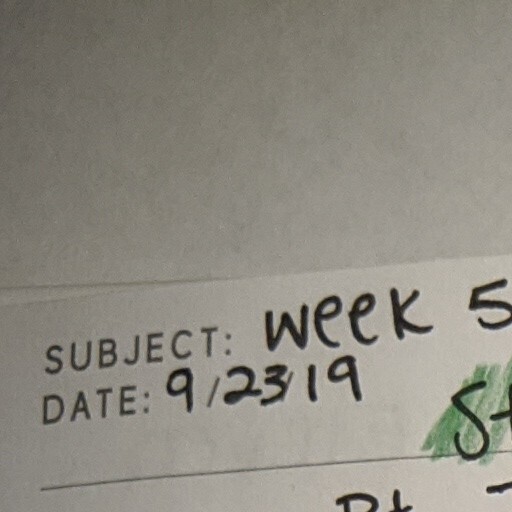 SUBJECT: week 5
DATE: 9/23/19
St
Pt